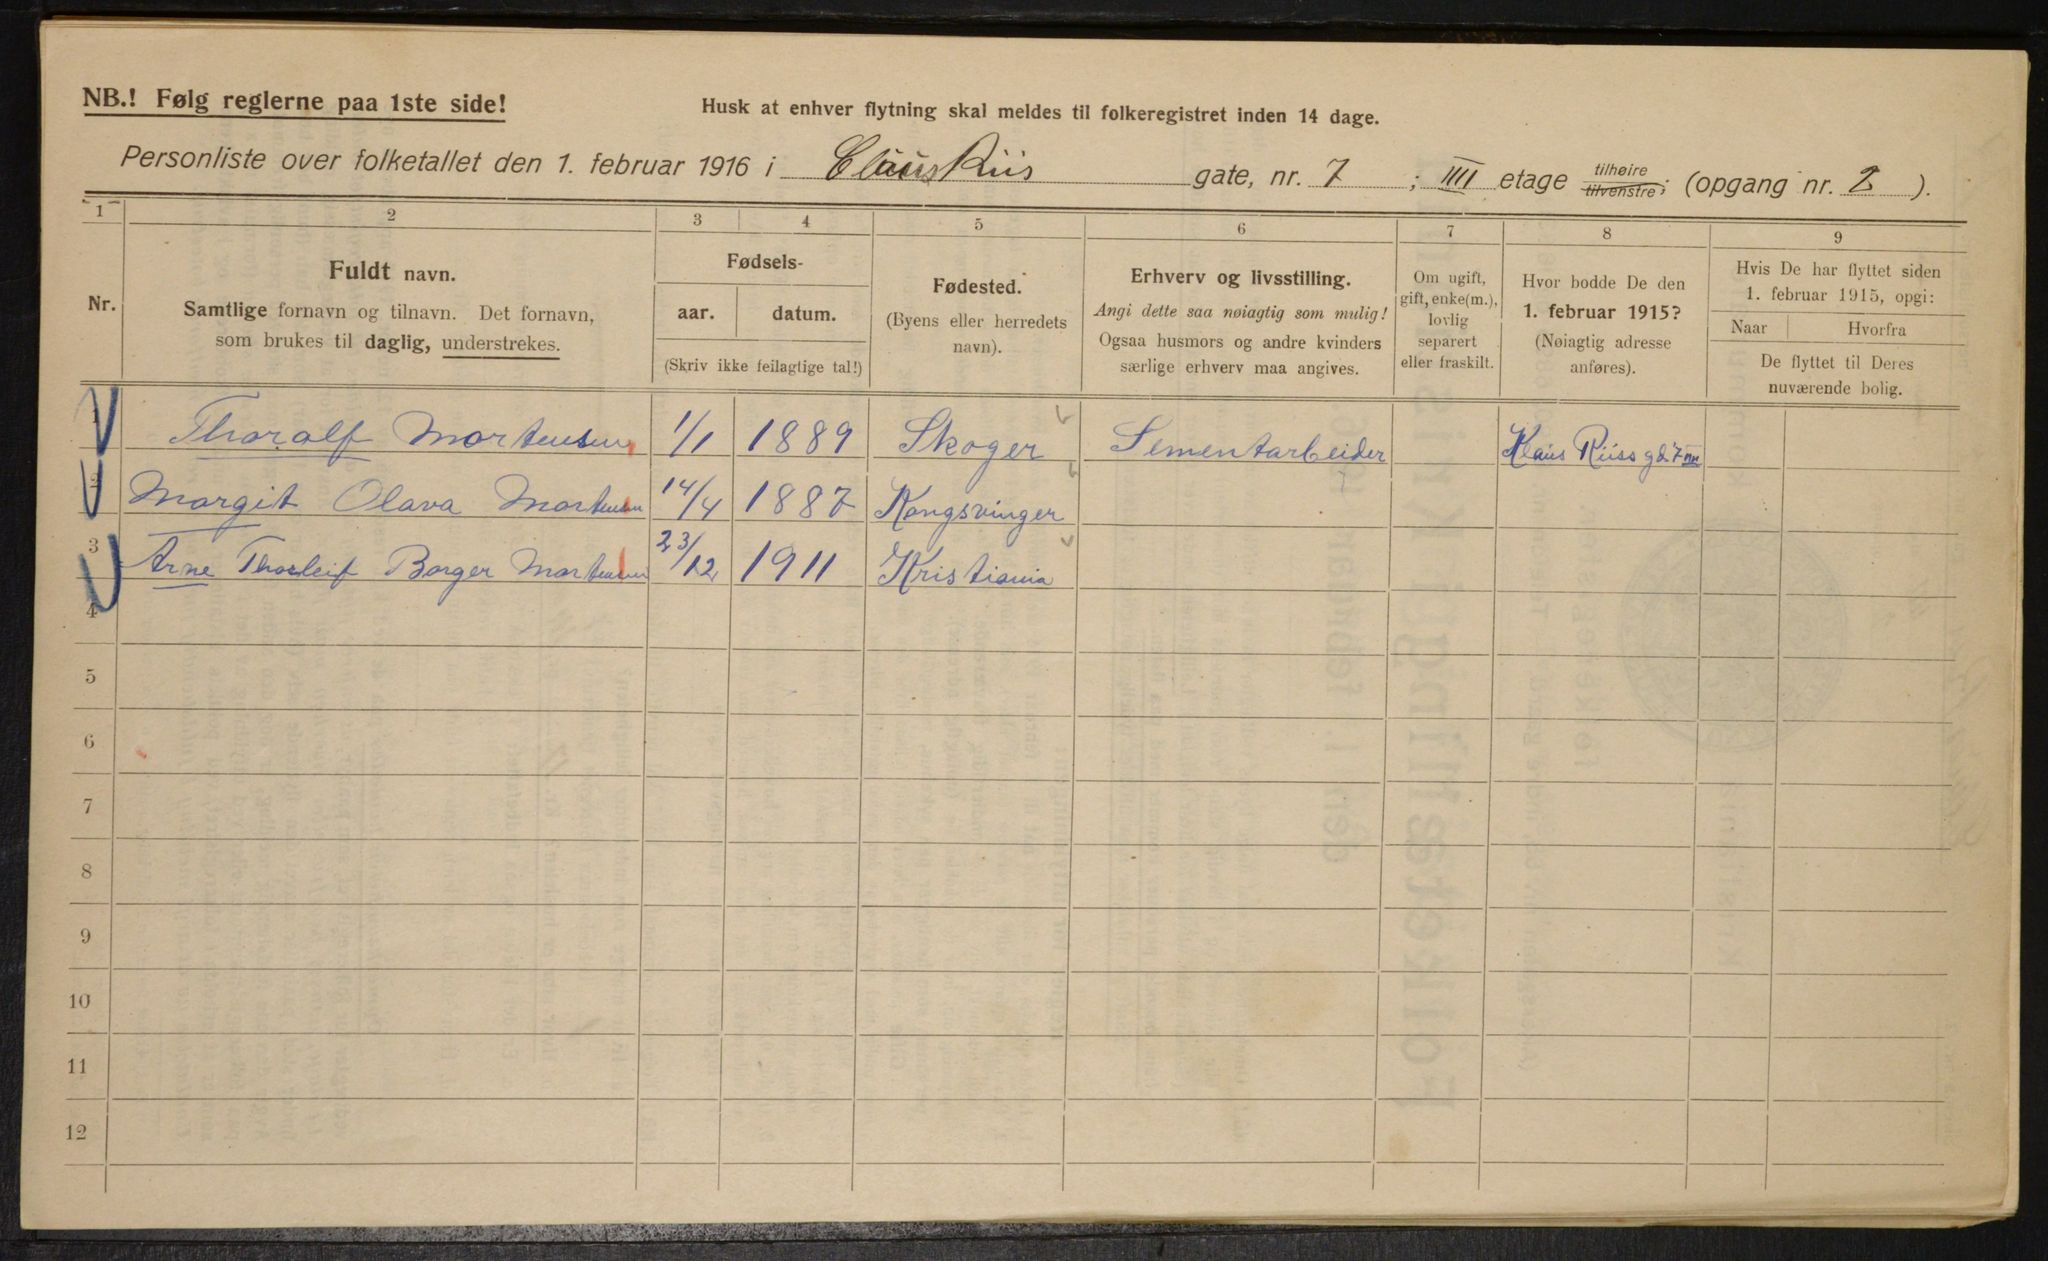 NB.! Følg reglerne paa 1ste side!
Husk at enhver flytning skal meldes til folkeregistret inden 14 dage.
Personliste over folketallet den 1. februar 1916 i Claus Riis gate, nr. 7; IIII etage tilhøire tilvenstre; (opgang nr. 2).
1 2 3 4 5 6 7 8 9
Nr.
Fuldt navn.
Samtlige fornavn og tilnavn. Det fornavn,
som brukes til daglig, understrekes.
Fødsels-
aar. datum.
(Skriv ikke feilagtige tal!)
Fødested.
(Byens eller herredets
navn).
Erhverv og livsstilling.
Angi dette saa nøiagtig som mulig!
Ogsaa husmors og andre kvinders
særlige erhverv maa angives.
Om ugift,
gift, enke(m.),
lovlig
separert
eller fraskilt.
Hvor bodde De den
1. februar 1915?
(Nøiagtig adresse
anføres).
Hvis De har flyttet siden
1. februar 1915, opgi:
Naar Hvorfra
De flyttet til Deres
nuværende bolig.
1 Thoralf Mortensen 1/1 1889 Skoger Sementarbeider Klaus Riiss gd 7
2 Margit Olava Mortensen 14/4 1887 Kongsvinger
3 Arne Thorleif Borger Mortensen 23/12 1911 Kristiania
4
5
6
7
8
9
10
11
12